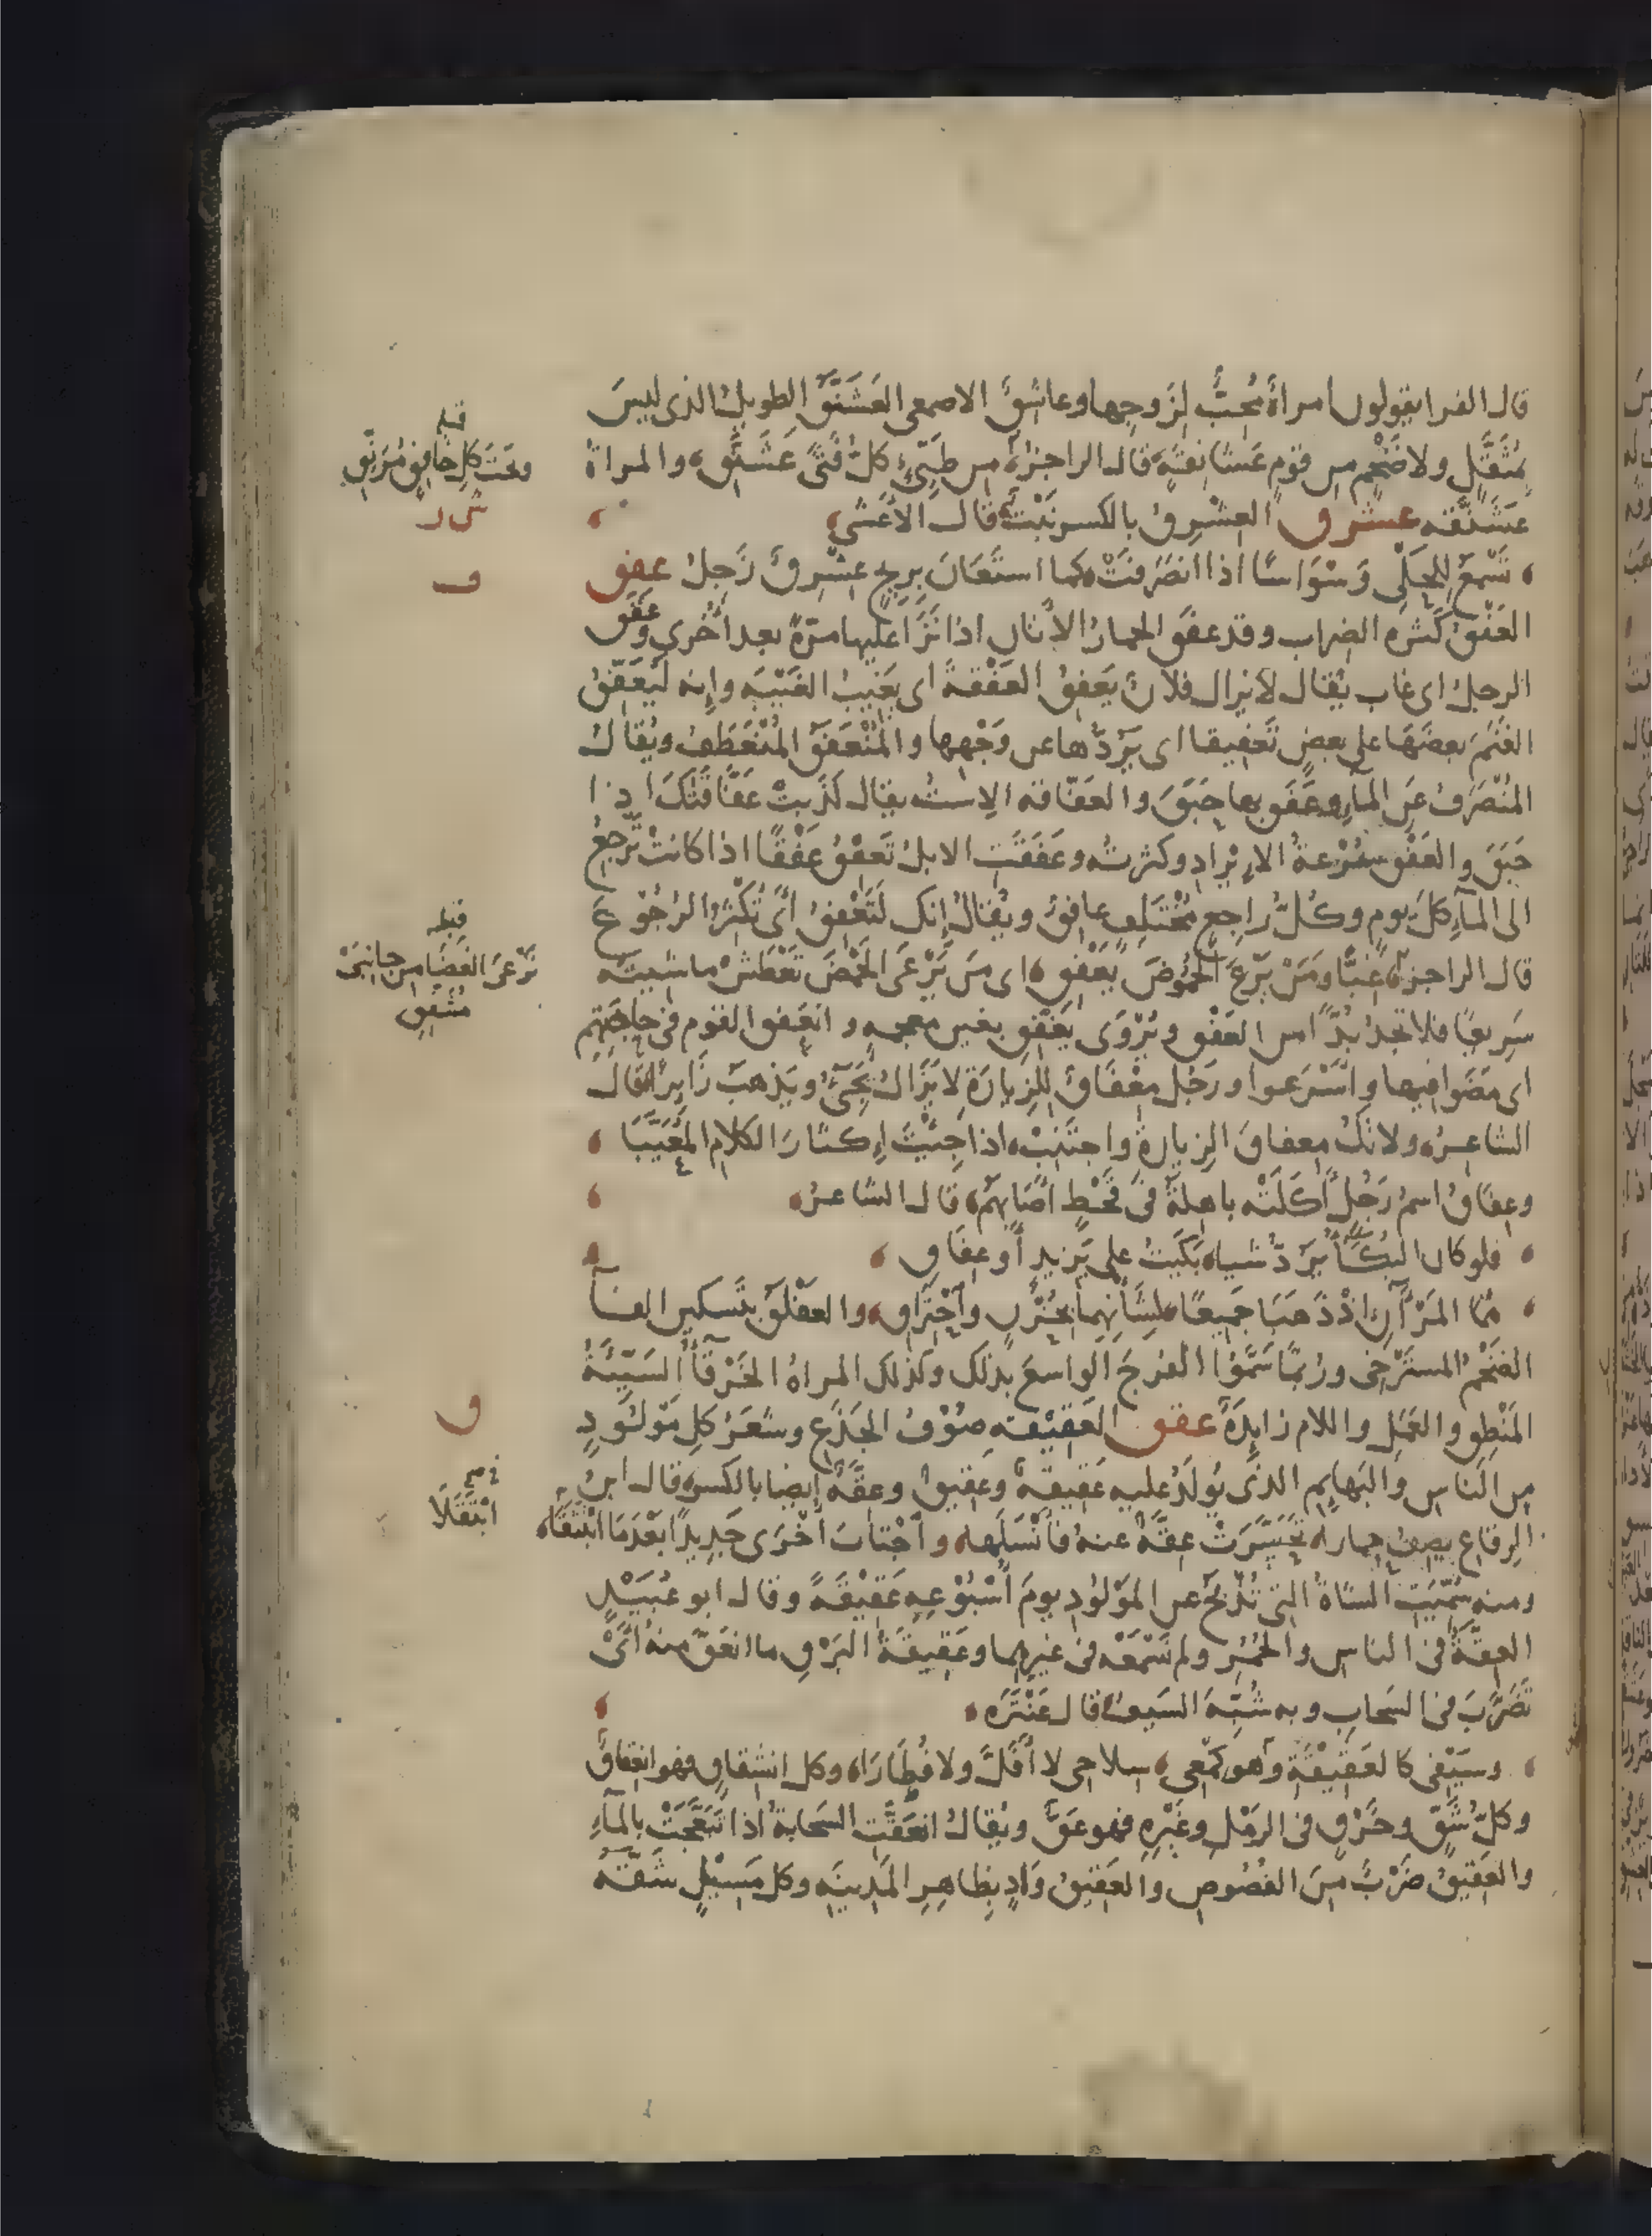 قال الفرا يقولون امراةٌ مُحِبٌّ لِزَوجِها وعاشِقٌ الاصمعي العَشَنَّقُ الطويلُ الذي ليسَ
بمُثَقَّلٍ ولا ضَخْمٍ من قومٍ عَشَانِقَةٍ قال الراجز من طَيِّئٍ كلُّ فَتًى عَشَنَّقِ والمراة
عَشَنَّقَه عشرق العِشْرِقُ بالكسر نَبْتٌ قال الأعْشى
تَسْمَعُ لِلحَلْيِ وَسْوَاسًا اذا انصَرَفَتْ كما استَعَانَ بِرِيحٍ عِشْرِقٌ زَجِلُ عفق
العَفْقُ كَثره الضِراب وقد عفَق الحمارُ الأتان اذا نَزَا عليها مرّةً بعد أُخرى وعَفَق
الرجلُ اى غاب يُقال لا يزال فلانٌ يَعفِقُ العَفْقةَ اى يَغيبُ الغَيْبَه وإنه لَيُعَفِّقُ
الغنَمَ بعضَهَا على بعضٍ تَعفيقا اى يَرُدّها عن وَجْهِها والمُنْعَفَقُ المُنْعَطَفُ ويُقالُ
المُنْصَرَفُ عَنِ المآءِ وعَفَق بها حَبَقَ والعَفّاقه الاِستُ يقال كَذَبتْ عَفّاقَتُكَ اذا
حَبَقَ والعَفْق سُرْعةُ الايْرادِ وكثرتُه وعَفَقَتِ الابلُ تَعفِقُ عَفْقًا اذا كانتْ تَرجِعُ
الى المآءِ كلَّ يومٍ وكُلُّ راجعٍ مُخْتَلِفٍ عافِقٌ ويُقالُ إنك لَتَعْفِقُ أى تُكْثِرُ الرُجُوعَ
قال الراجز غِبًّا ومَنْ يَرْعَ الحُمُوضَ يَعْفِقِ اى مَن يَرْعَى الحَمْضَ تَعْطَشْ ماشيتُه
سَرِيعًا فلا تَجدُ بُدًّا من العَفْقِ ويُرْوَى يَغْفِقِ بغين معجمه وانعَفق القوم فى حاجَتِهم
اى مَضَوا فيها واسْرَعوا ورَجُل مِعْفَاقُ لِلزيارَةِ لا يَزَالُ يَجِىءُ ويَذهبُ زَايِرًا قالَ
الشاعرُ ولا تكُ مِعفاقَ الزيارةِ واجتَنِبْ اذا جِئْتَ إِكثارَ الكلامِ المُعَيَّبَا
وعِفَاقُ اسمُ رَجُلٍ أكَلَتْه باهِلةُ فى قَحْطٍ أصَابَهُم قال الشاعرُ
فلو كان البُكآءُ يَرُدّ شيا بَكَيْتُ على يَزيدٍ أو عِفَاقِ
هُمَا المَرْآنِ اذْ ذَهَبَا جَميعًا لِشَأْنِهِما بحُزْنٍ وَاحْتِرَاقِ والعفْلَقُ بتَسكين الفآ
الضَخْمُ المستَرْخى ورُبمّا سَمَّوُا الفَرجَ الواسعَ بذلك وكذلك المراةُ الخَرْقآءُ السَيِّئةُ
المَنْطِق والعَمَل واللام زايدَة عقق العَقِيْقه صُوْفُ الجَذَعِ وشَعَرُ كلِ مَوْلُودٍ
من الناس والبَهايِمِ الذى يُولَدُ عليه عَقِيقةٌ وعَقيقٌ وعِقّةٌ ايضا بالكسر قال ابنُ
الرقاع يصِفُ حِمارا تَحَسَّرَتْ عِقّةٌ عنه فأَنْسَلَها واجْتابَ أُخْرَى جَدِيدًا بَعْدَمَا ابْتَقَلا
ومنه سُمِّيَتِ الشاةُ التى تُذْبَحُ عن المَوْلُودِ يومَ أُسْبُوْعِهِ عَقِيْقَةً وقال ابو عُبَيْدٍ
العِقّةُ فى الناسِ والحُمُرِ ولم نَسْمَعْه فى غيرِهما وعَقِيقَةُ البَرْقِ ما انعَقَّ منهُ أىْ
تَضَرَّبَ فى السَحابِ وبه شُبِّهَ السَيفُ قال عَنْتَرَه
وسَيْفى كالعَقِيْقةِ وهو كِمْعى سلاحى لا أَفَلَّ ولا فُطَارَا وكل انشِقاقٍ فهو انعِقاقٌ
وكلُّ شَقٍّ وخَرْقٍ فى الرَمْلِ وغَيْرِهِ فهو عَقٌّ ويُقالُ انعَقّتِ السَحابةُ اذا تَبَعَّجَتْ بالمآءِ
والعَقيقُ ضَرْبٌ مِنَ الفُصُوصِ والعَقيقُ وَادٍ بِظاهِرِ المَدِينَهِ وكل مَسِيْلٍ شَقَّهُ
قبله
وتَحتَ كلِّ خافِقٍ مُرَنَّقِ
ش ر
ف
قبله
تَرْعَى الغَضَا من جانِبَىْ
مُشَفِّقِ
ق
ابْتَقَلَا